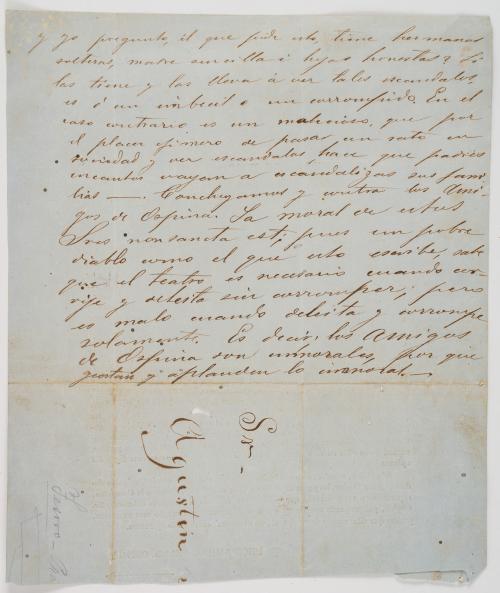 y yo pregunto, él que pide esto, tiene hermanas
solteras, madre sencilla é hijas honestas? Si
las tiene y las lleva á ver tales escandalos,
es ó un imbecil o un corrompido. En el
caso contrario es un malicioso, que por
el placer efimero de pasar un rato en
sociedad y ver escandalos, hace que padres
incautos vayan a escandalizar sus fami
lias —. Concluyamos y contra los Ami-
gos de Ospina. La moral de estos
Sres non sancta est; pues un pobre
diablo como el que esto escribe, sabe
que el teatro es necesario cuando cor-
rije y deleita sin corromper; pero
es malo cuando deleita y corrompe
solamente. Es decir, los Amigos
de Ospina son inmorales, por que
gustan y aplauden lo inmoral. —
Sr.
Agustin